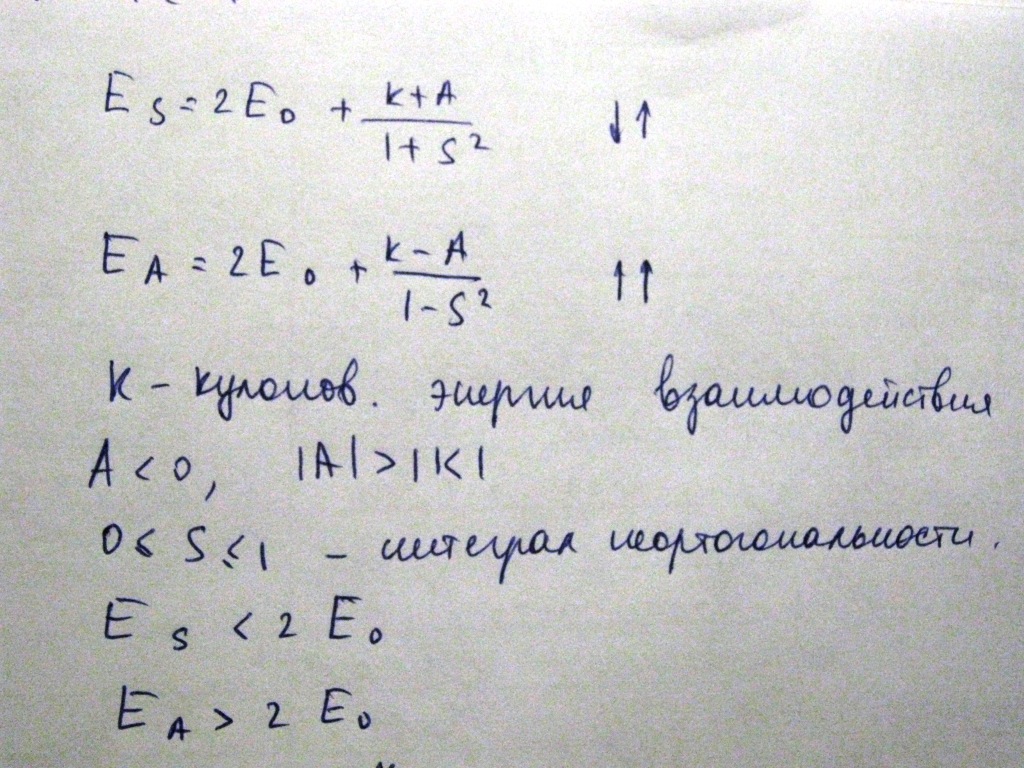 E_S = 2E_0 + (K+A)/(1+S²) ↓↑
E_A = 2E_0 + (K-A)/(1-S²) ↑↑
K - кулонов. энергия взаимодействия
A < 0, |A| > |K|
0 ≤ S ≤ 1 - интеграл неортогональности.
E_S < 2 E_0
E_A > 2 E_0